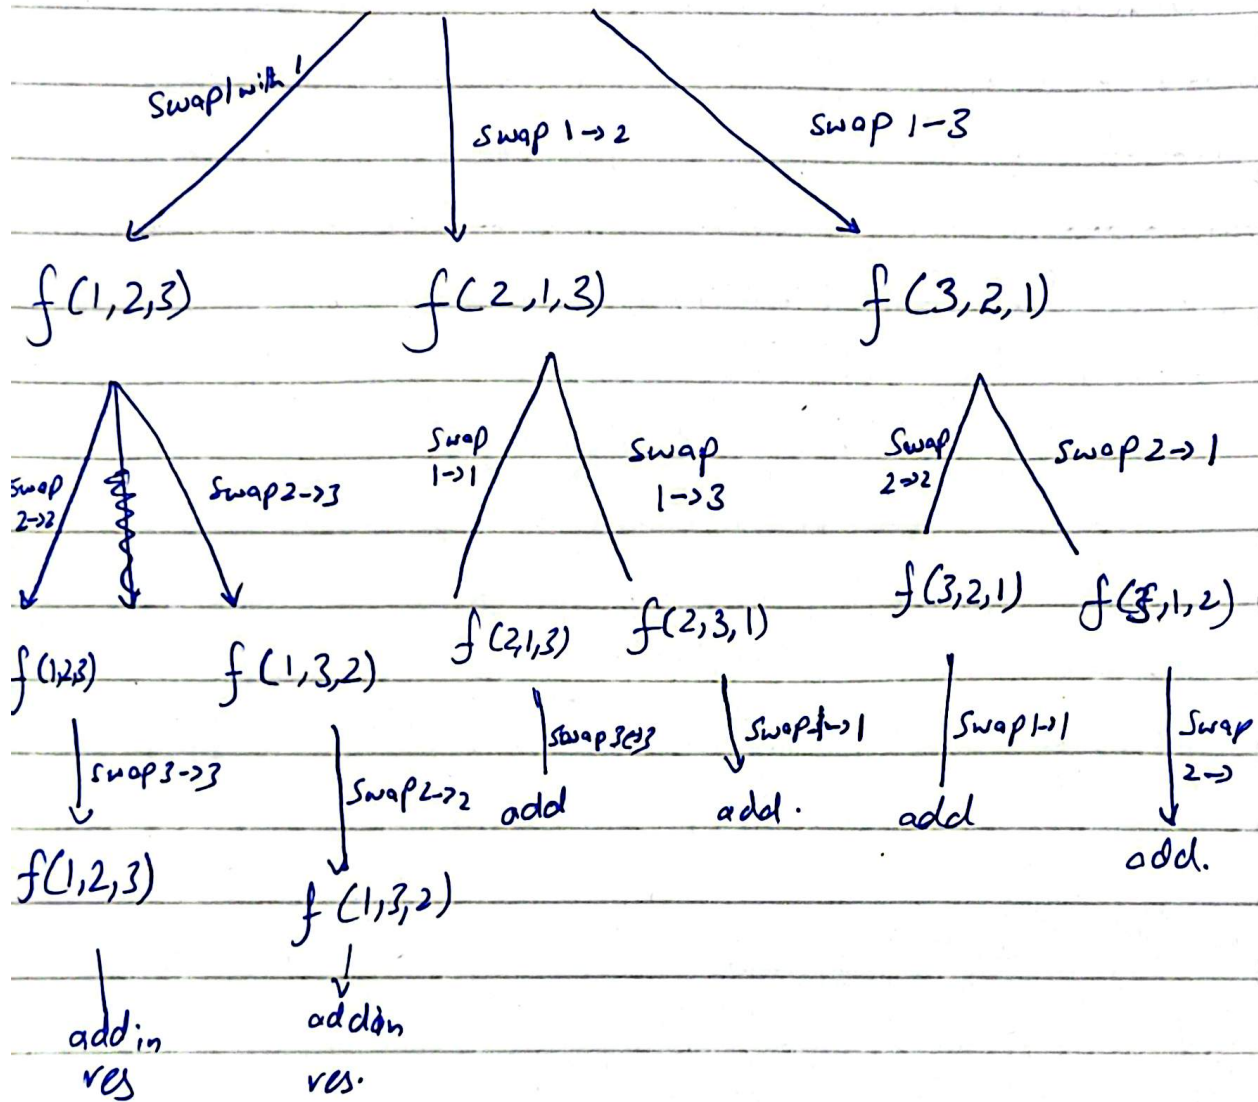 Swap 1 with 1
swap 1→2
swap 1-3
f(1,2,3) f(2,1,3) f(3,2,1)
swap 2→2
Swap 2→3
Swap 1→1
Swap 1→3
Swap 2→2
Swap 2→1
f(1,2,3) f(1,3,2) f(2,1,3) f(2,3,1) f(3,2,1) f(3,1,2)
swap 3→3
Swap 2→2
Swap 3→3
Swap 1→1
Swap 1→1
Swap 2→
add add. add add.
f(1,2,3)
f(1,3,2)
add in res
add in res.